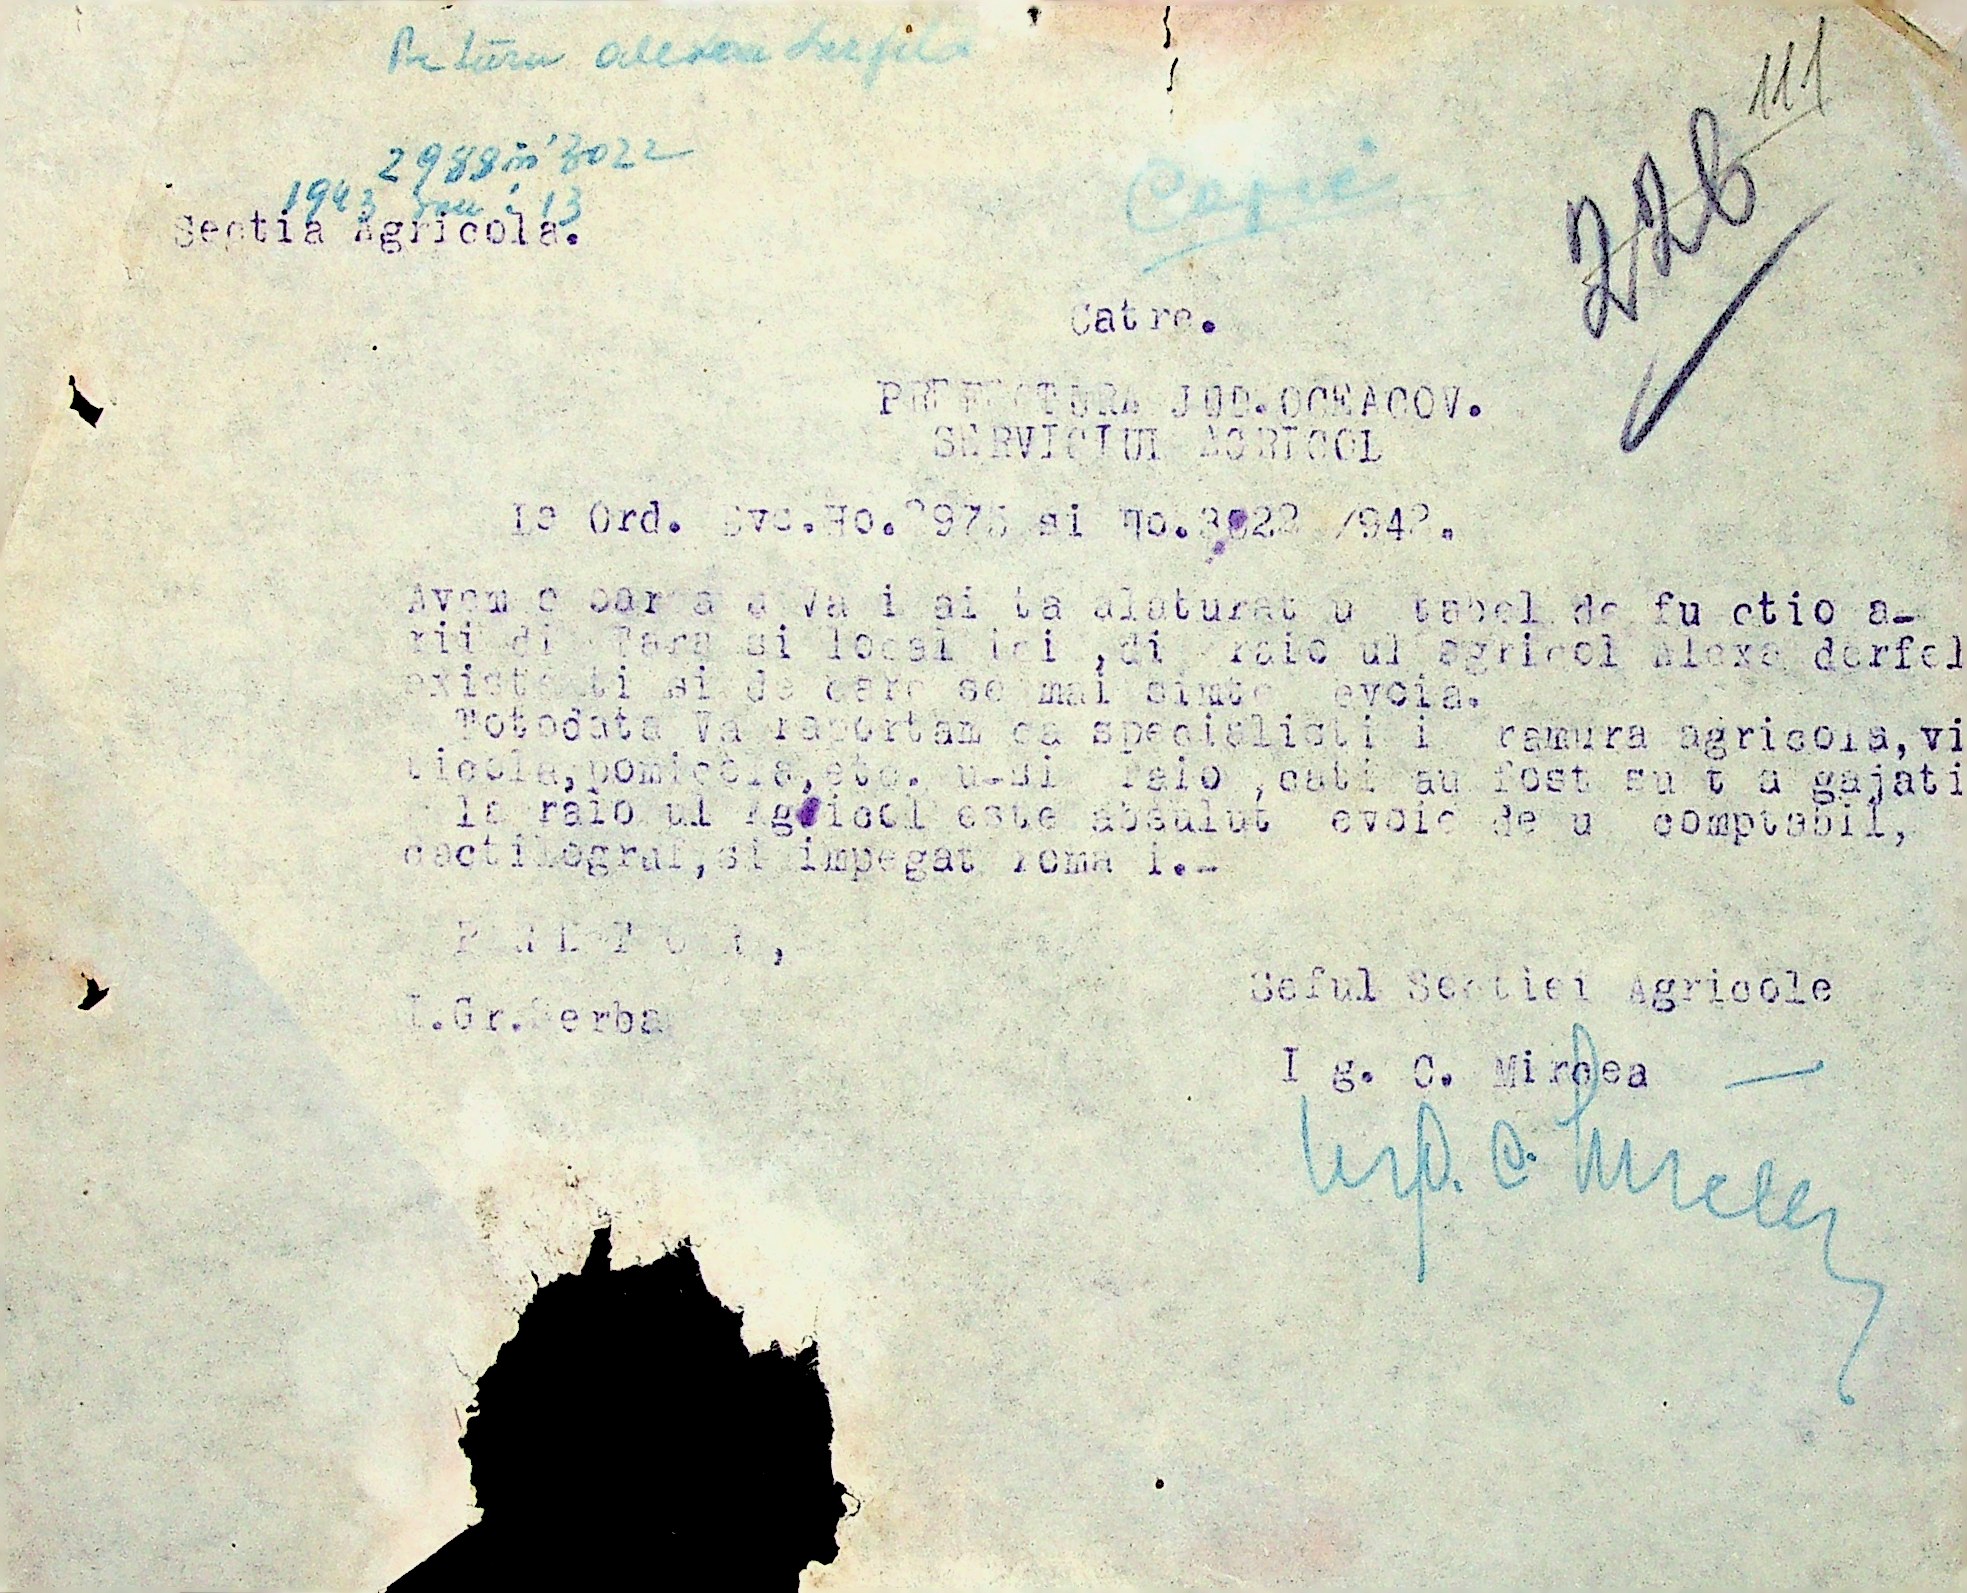 111
226
2988 si 3022
1943 Iuni 13
Copie
Sectia Agricola.
Catre.
PREFECTURA JUD.OCEACOV.
SERVICIUL AGRICOL
La Ord. Dvs.No. 297 si No.3022 /943.
Avem o oar a a Va i ai ta alaturat u tabel de fu ctio a-
rii di Tara si local ici ,di raio ul agricol Alexa derfel
existe ti si de care se mai simte evoia.
Totodata Va raportam ca specialisti i ramura agricola,vi
ticola,pomicola,etc. u-si raio ,cati au fost su t a gajati
la raio ul Agricol este absolut evoie de u comptabil,
dactilograf,si impegat roma i.-
P R E T O R ,
I.Gr.Serba
Seful Sectiei Agricole
I g. C. Mircea
Ing. C. Mircea